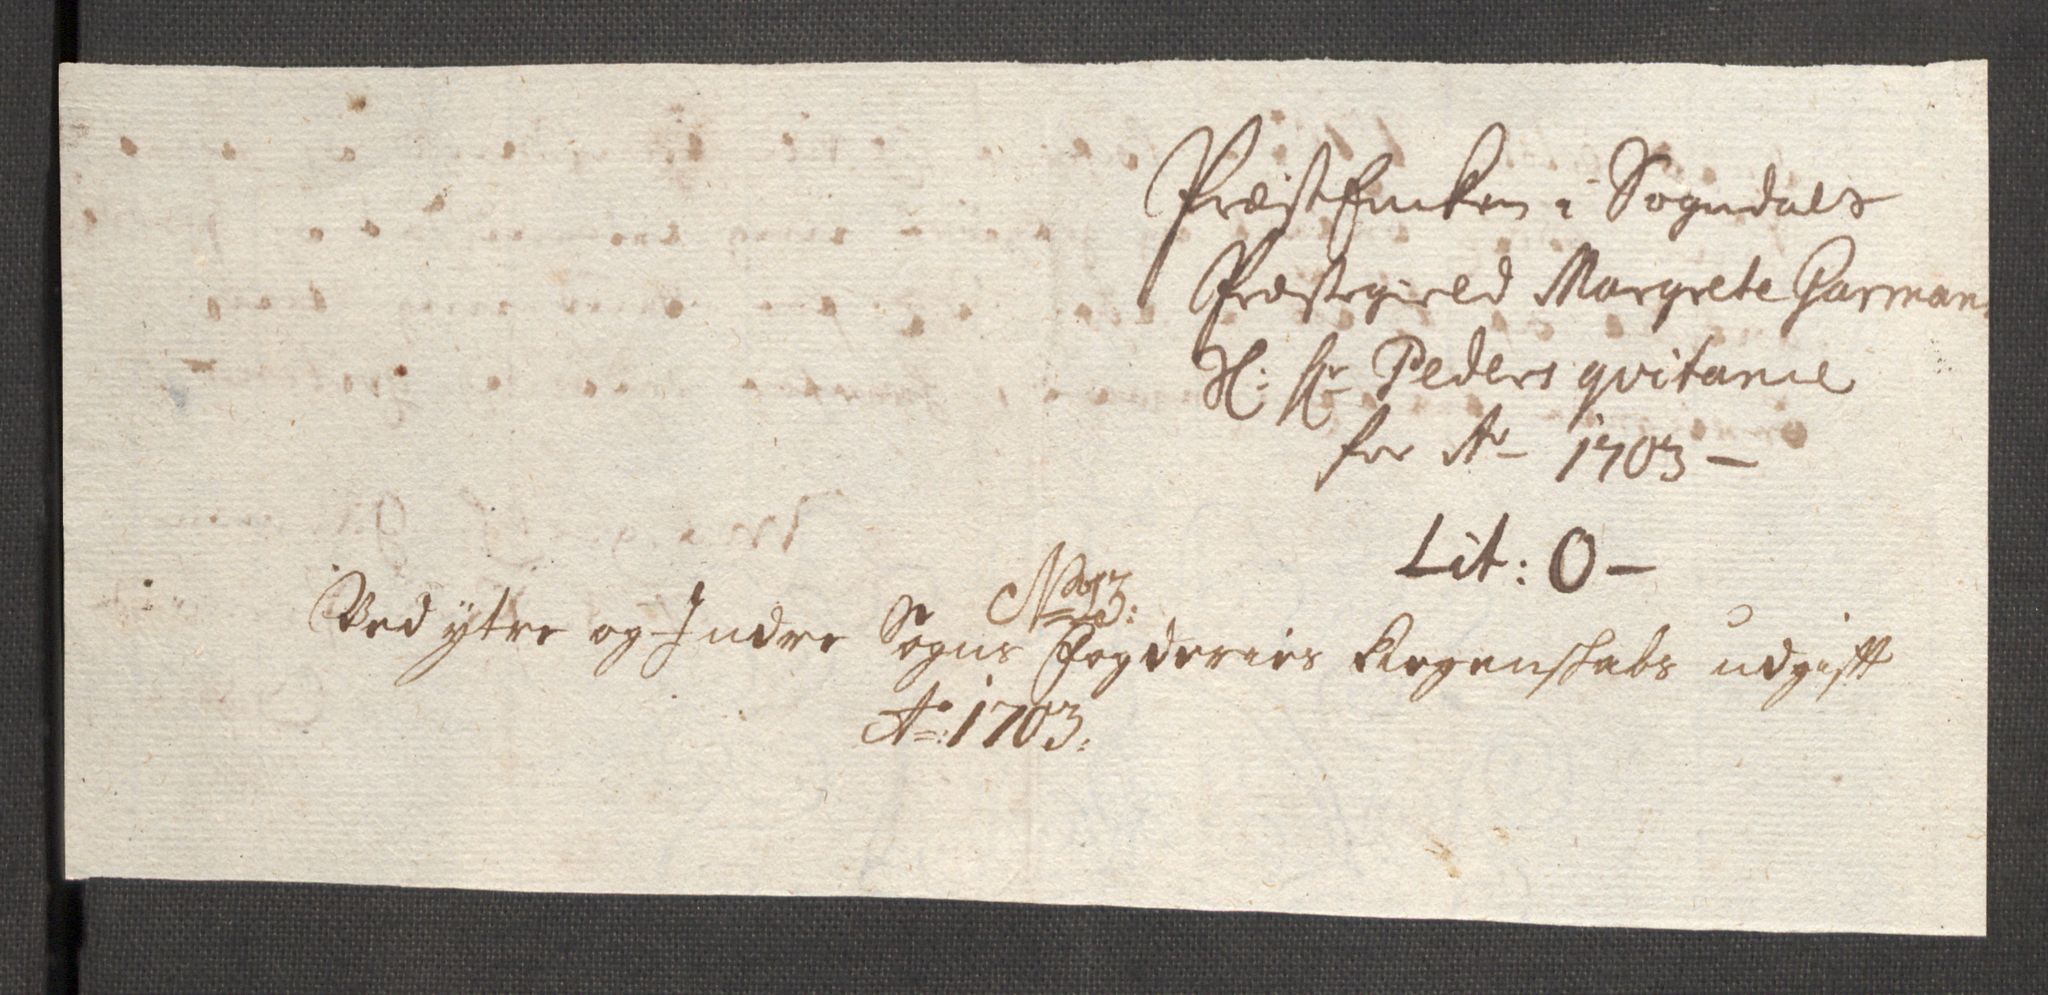 PræstEncken i Sogndals
Præstegield Margrete Garman
Sl: Hr Peders qvitanie
for Ao 1703 –
Lit: O –
No 13:
Ved ytre og Indre Sogns Fogderies Regenskabs udgifft
Ao: 1703.